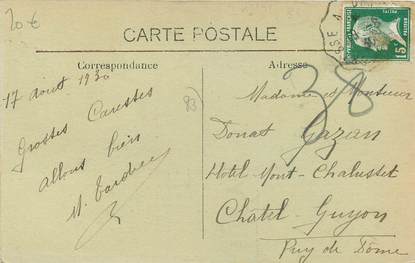 20 €
CARTE POSTALE
Correspondance
Adresse
17 août 1930
Grosses Caresses
allons bien
M. Tardieu
83
38
Madame et Monsieur
Donat Gazan
Hotel Mont-Chalusset
Chatel-Guyon
Puy de Dôme
15c